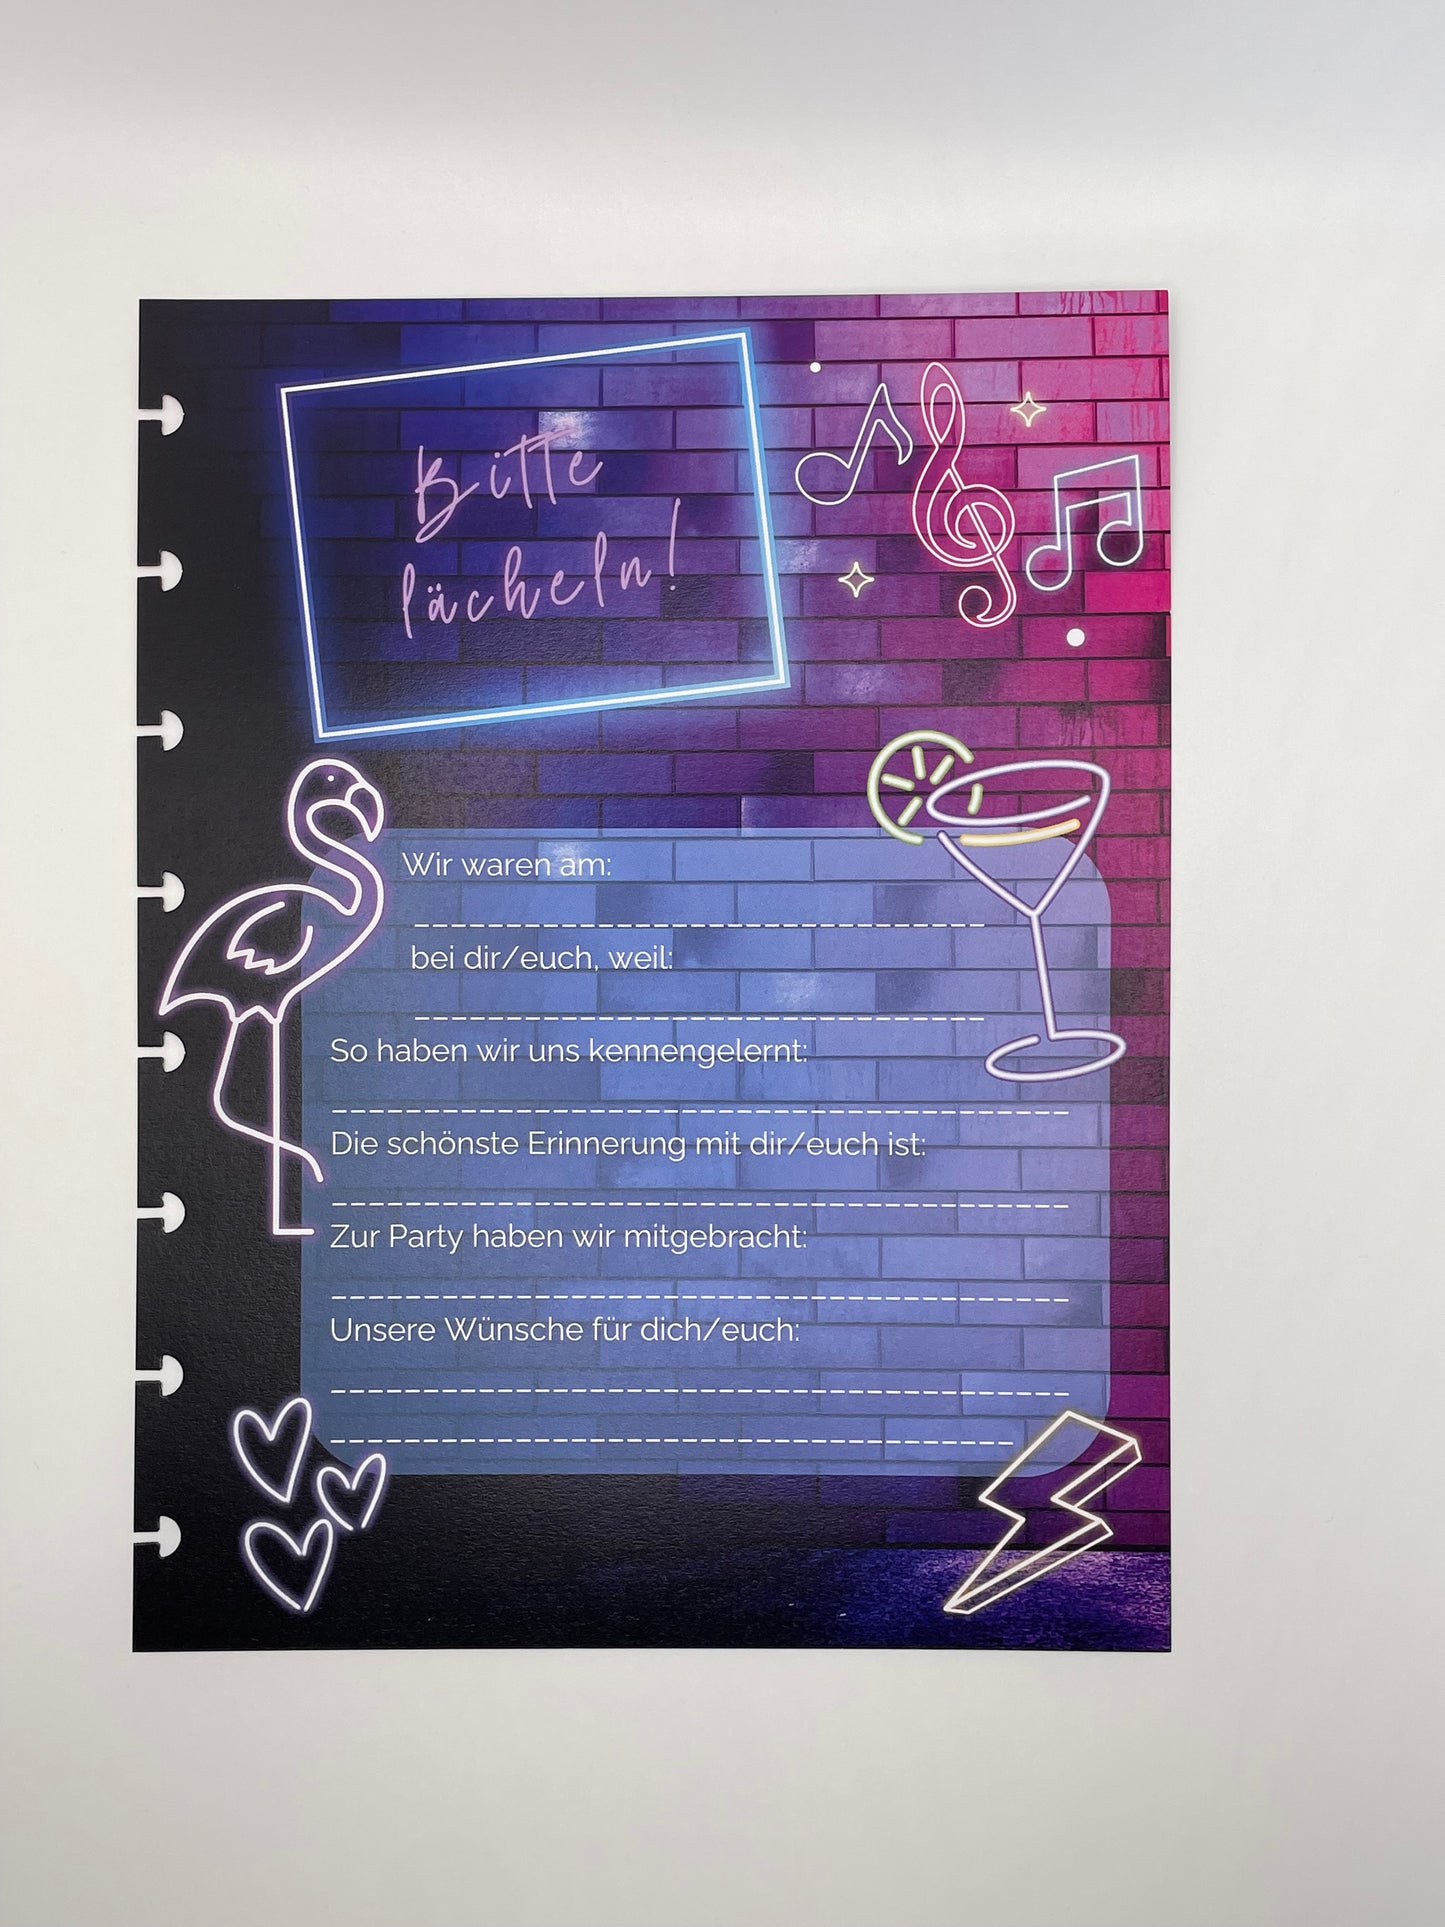 Bitte
lächeln!
Wir waren am:
bei dir/euch, weil:
So haben wir uns kennengelernt:
Die schönste Erinnerung mit dir/euch ist:
Zur Party haben wir mitgebracht:
Unsere Wünsche für dich/euch: